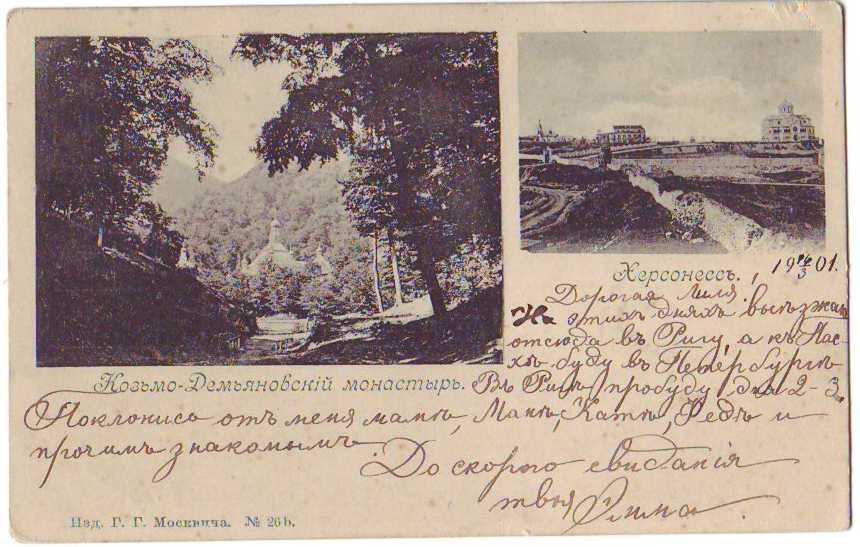 Херсонессъ.
19 16/3 01.
Дорогая Лиля.
На этихъ дняхъ выѣзжаю
отсюда въ Ригу, а къ Пас-
хѣ буду въ Петербургѣ
Козьмо-Демьяновскій монастырь.
Въ Ригѣ пробуду дня 2-3.
Поклонись отъ меня мамѣ, Манѣ, Катѣ, Федѣ и
прочимъ знакомымъ.
До скораго свиданія
твоя
Изд. Г. Г. Москвича. № 26 b.